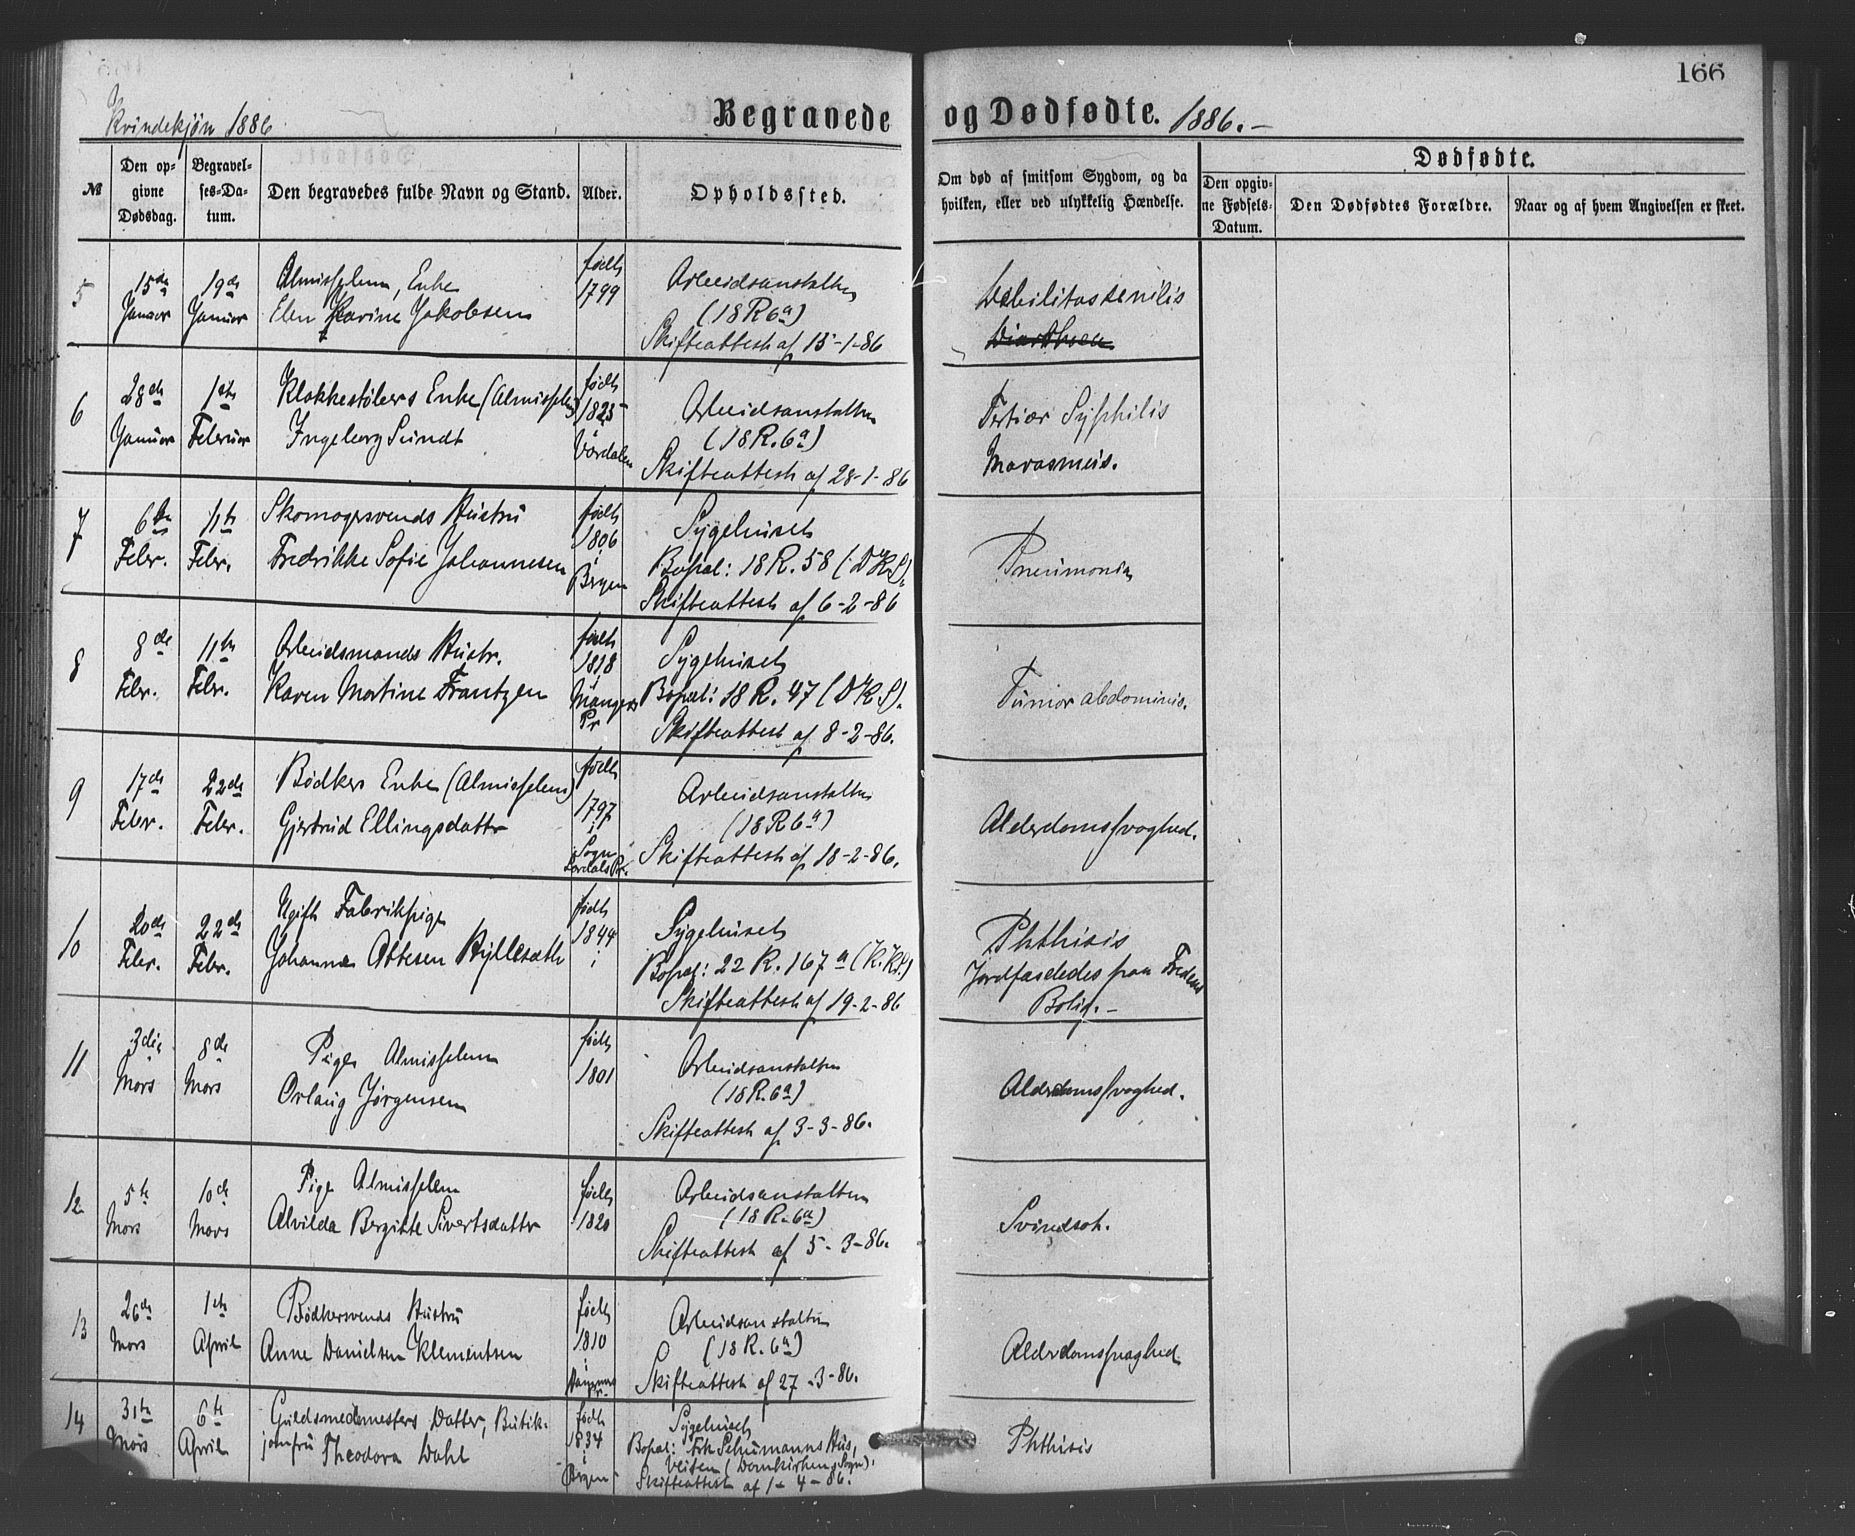 166
Kvindekjøn 1886
Begravede og Dødfødte. 1886.-
№
Den opgivne Dødsdag.
Begravelses-Datum.
Den begravedes fulde Navn og Stand.
Alder.
Opholdssted.
Om død af smitsom Sygdom, og da hvilken, eller ved ulykkelig Hændelse.
Dødfødte.
Den opgivne Fødsels-Datum.
Den Dødfødtes Forældre.
Naar og af hvem Angivelsen er skeet.
5
15de Januar
19de Januar
Almisselem, Enke
Elen Karine Jakobsen
født 1799
Arbeidsanstalten
(18 R 6a)
Skifteattest af 15-1-86
Debilitas senilis
6
28de Januar
1ste Februar
Klokkestøbers Enke (Almisselem)
Ingeborg Sundt
født 1825 i
Arbeidsanstalten
(18 R. 6a)
Skifteattest af 28-1-86
Tertiær Syphilis
Marasmus.
7
6te Febr.
11te Febr.
Skomagersvends Hustru
Fredrikke Sofie Johannesen
født 1806 i Bergen
Sygehuset
Bopæl: 18 R. 58 (DKS).
Skifteattest af 6-2-86
Pneumonia
8
8de Febr.
11te Febr.
Arbeidsmands Hustr.
Karen Martine Frantzen
født 1818 i Mangers Pr
Sygehuset
Bopæl: 18 R. 47 (DKS).
Skifteattest af 8-2-86.
Tumor abdominis.
9
17de Febr.
22de Febr.
Bødkers Enke (Almisselem)
Gjertrud Ellingsdatter
født 1797 i Sogn
Arbeidsanstalten
(18 R 6a)
Skifteattest af 18-2-86.
Alderdomssvaghed.
10
20de Febr.
22de Febr.
Ugift Fabrikspige
Johanne Attesen Hyllesæth
født 1844 i
Sygehuset
Bopæl: 22 R. 167a (K.K.)
Skifteattest af 19-2-86
Phthisis
Jordfæstedes paa Fredens
Bolig.-
11
3die Mars
8de Mars
Pige Almisselem
Orlaug Jørgensen
født 1801
Arbeidsanstalten
(18 R. 6a)
Skifteattest af 3-3-86.
Alderdomssvaghed.
12
5te Mars
10de Mars
Pige Almisselem
Alvilda Bergitte Sivertsdatter
født 1820
Arbeidsanstalten
(18 R. 6a)
Skifteattest af 5-3-86.
Svindsot.
13
26de Mars
1ste April
Bødkersvends Hustru
Anne Danielsen Klementsen
født 1810 i
Arbeidsanstalten
(18 R. 6a)
Skifteattest af 27-3-86.
Alderdomssvaghed
14
31te Mars
6te April
Guldsmedmesters Datter, Butik-
jomfru Theodora Dahl
født 1834 i Bergen
Sygehuset
Bopæl: Frk Schumanns Hus,
Veiten (Domkirkens Sogn).
Skifteattest af 1-4-86.
Phthisis